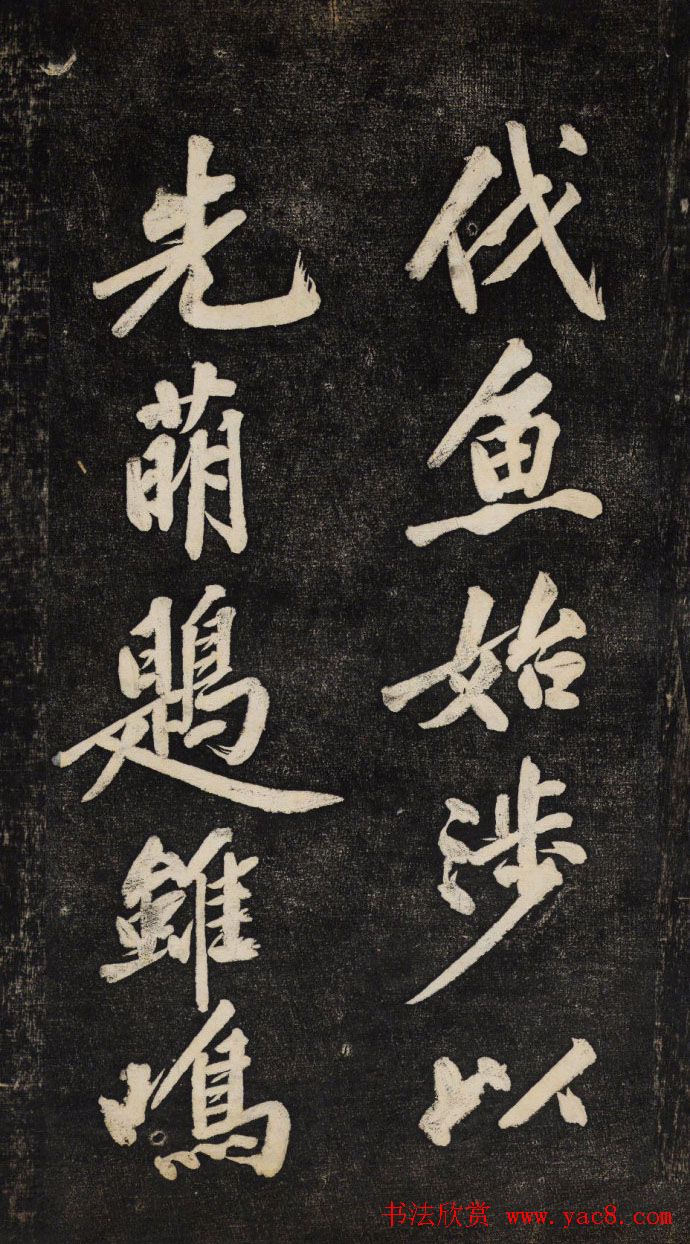 伐鱼始涉以
先萌鶗雖鳴
书法欣赏 www.yac8.com